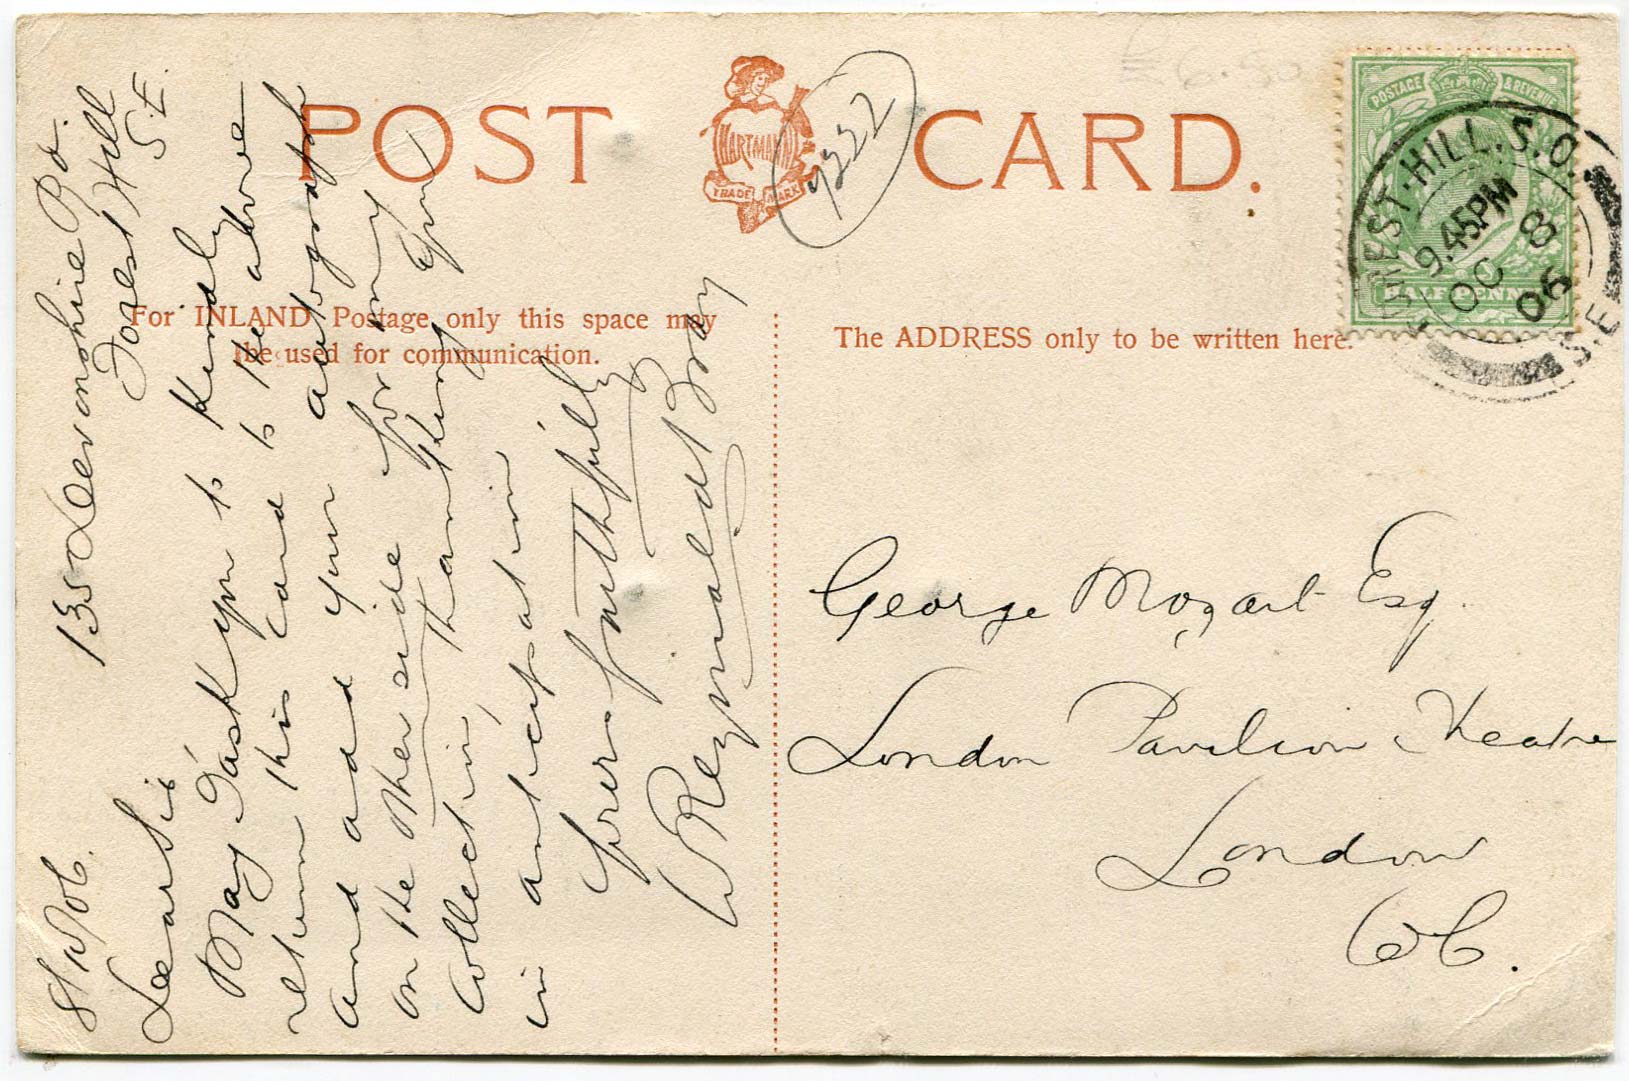 POST CARD.
HARTMANN
TRADE MARK
9222
£6.50
For INLAND Postage only this space may
be used for communication.
The ADDRESS only to be written here.
POSTAGE & REVENUE
HALF PENNY
FOREST-HILL.S.O.
9.45PM
OC 8
06
S.E.
135 Devonshire Rd.
Forest Hill
S.E.
Dear Sir
May I ask you to kindly
return this card to the above
and add your autograph
on the other side for my
collection, thanking you
in anticipation
Yours faithfully
W Reginald Bray
George Mozart Esq.
London Pavilion Theatre
London
WC.